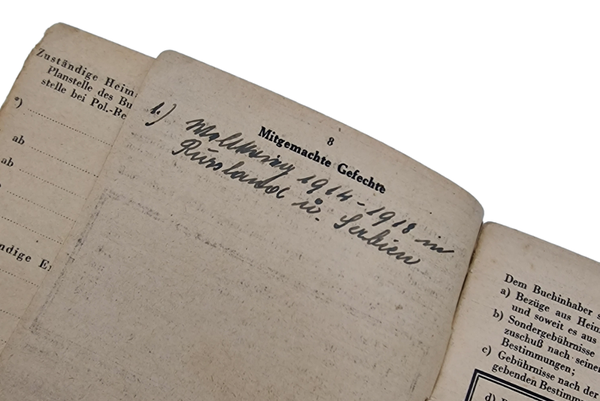 Zuständige Heim
Planstelle des Bu
stelle bei Pol.-Re
*)
ab
ab
ab
ndige E
8
Mitgemachte Gefechte
1.) Weltkrieg 1914-1918 in
Russland u. Serbien
Dem Buchinhaber s
a) Bezüge aus Heim
und soweit es aus
b) Sondergebührnisse
zuschuß nach seine
Bestimmungen;
c) Gebührnisse nach der
gebenden Bestimm
d)